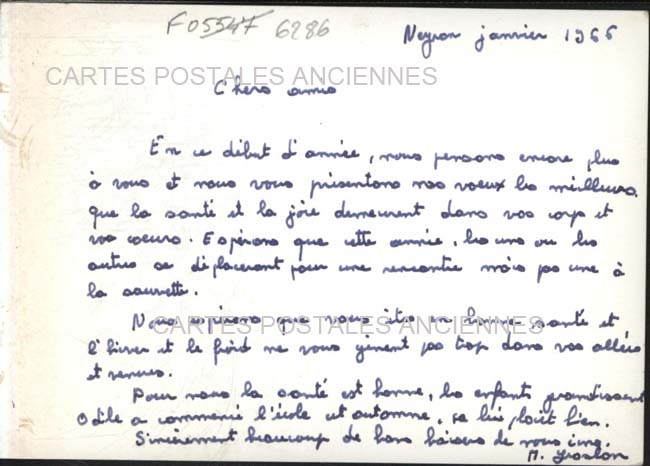 F05547 6286
Neyron janvier 1966
CARTES POSTALES ANCIENNES
Chers amis
En ce début d'année, nous pensons encore plus
à vous et nous vous présentons nos voeux les meilleurs.
que la santé et la joie demeurent dans vos corps et
vos coeurs. Espérons que cette année, les uns ou les
autres se déplaceront pour une rencontre mais pas une à
la sauvette.
Nous espérons que vous êtes en bonne santé et
CARTES POSTALES ANCIENNES
l'hiver et le froid ne vous gênent pas trop dans vos allées
et venues.
Pour nous la santé est bonne, les enfants grandissent
Odile a commencé l'école cet automne, ça lui plaît bien.
Sincèrement beaucoup de bons baisers de nous cinq.
M.